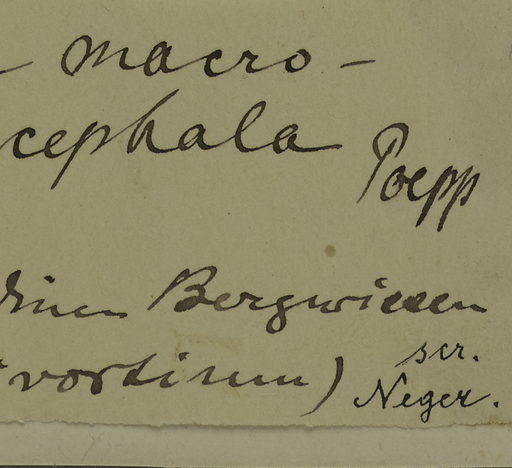 macro-
cephala Poepp
Bergwiesen
scr.
Neger.